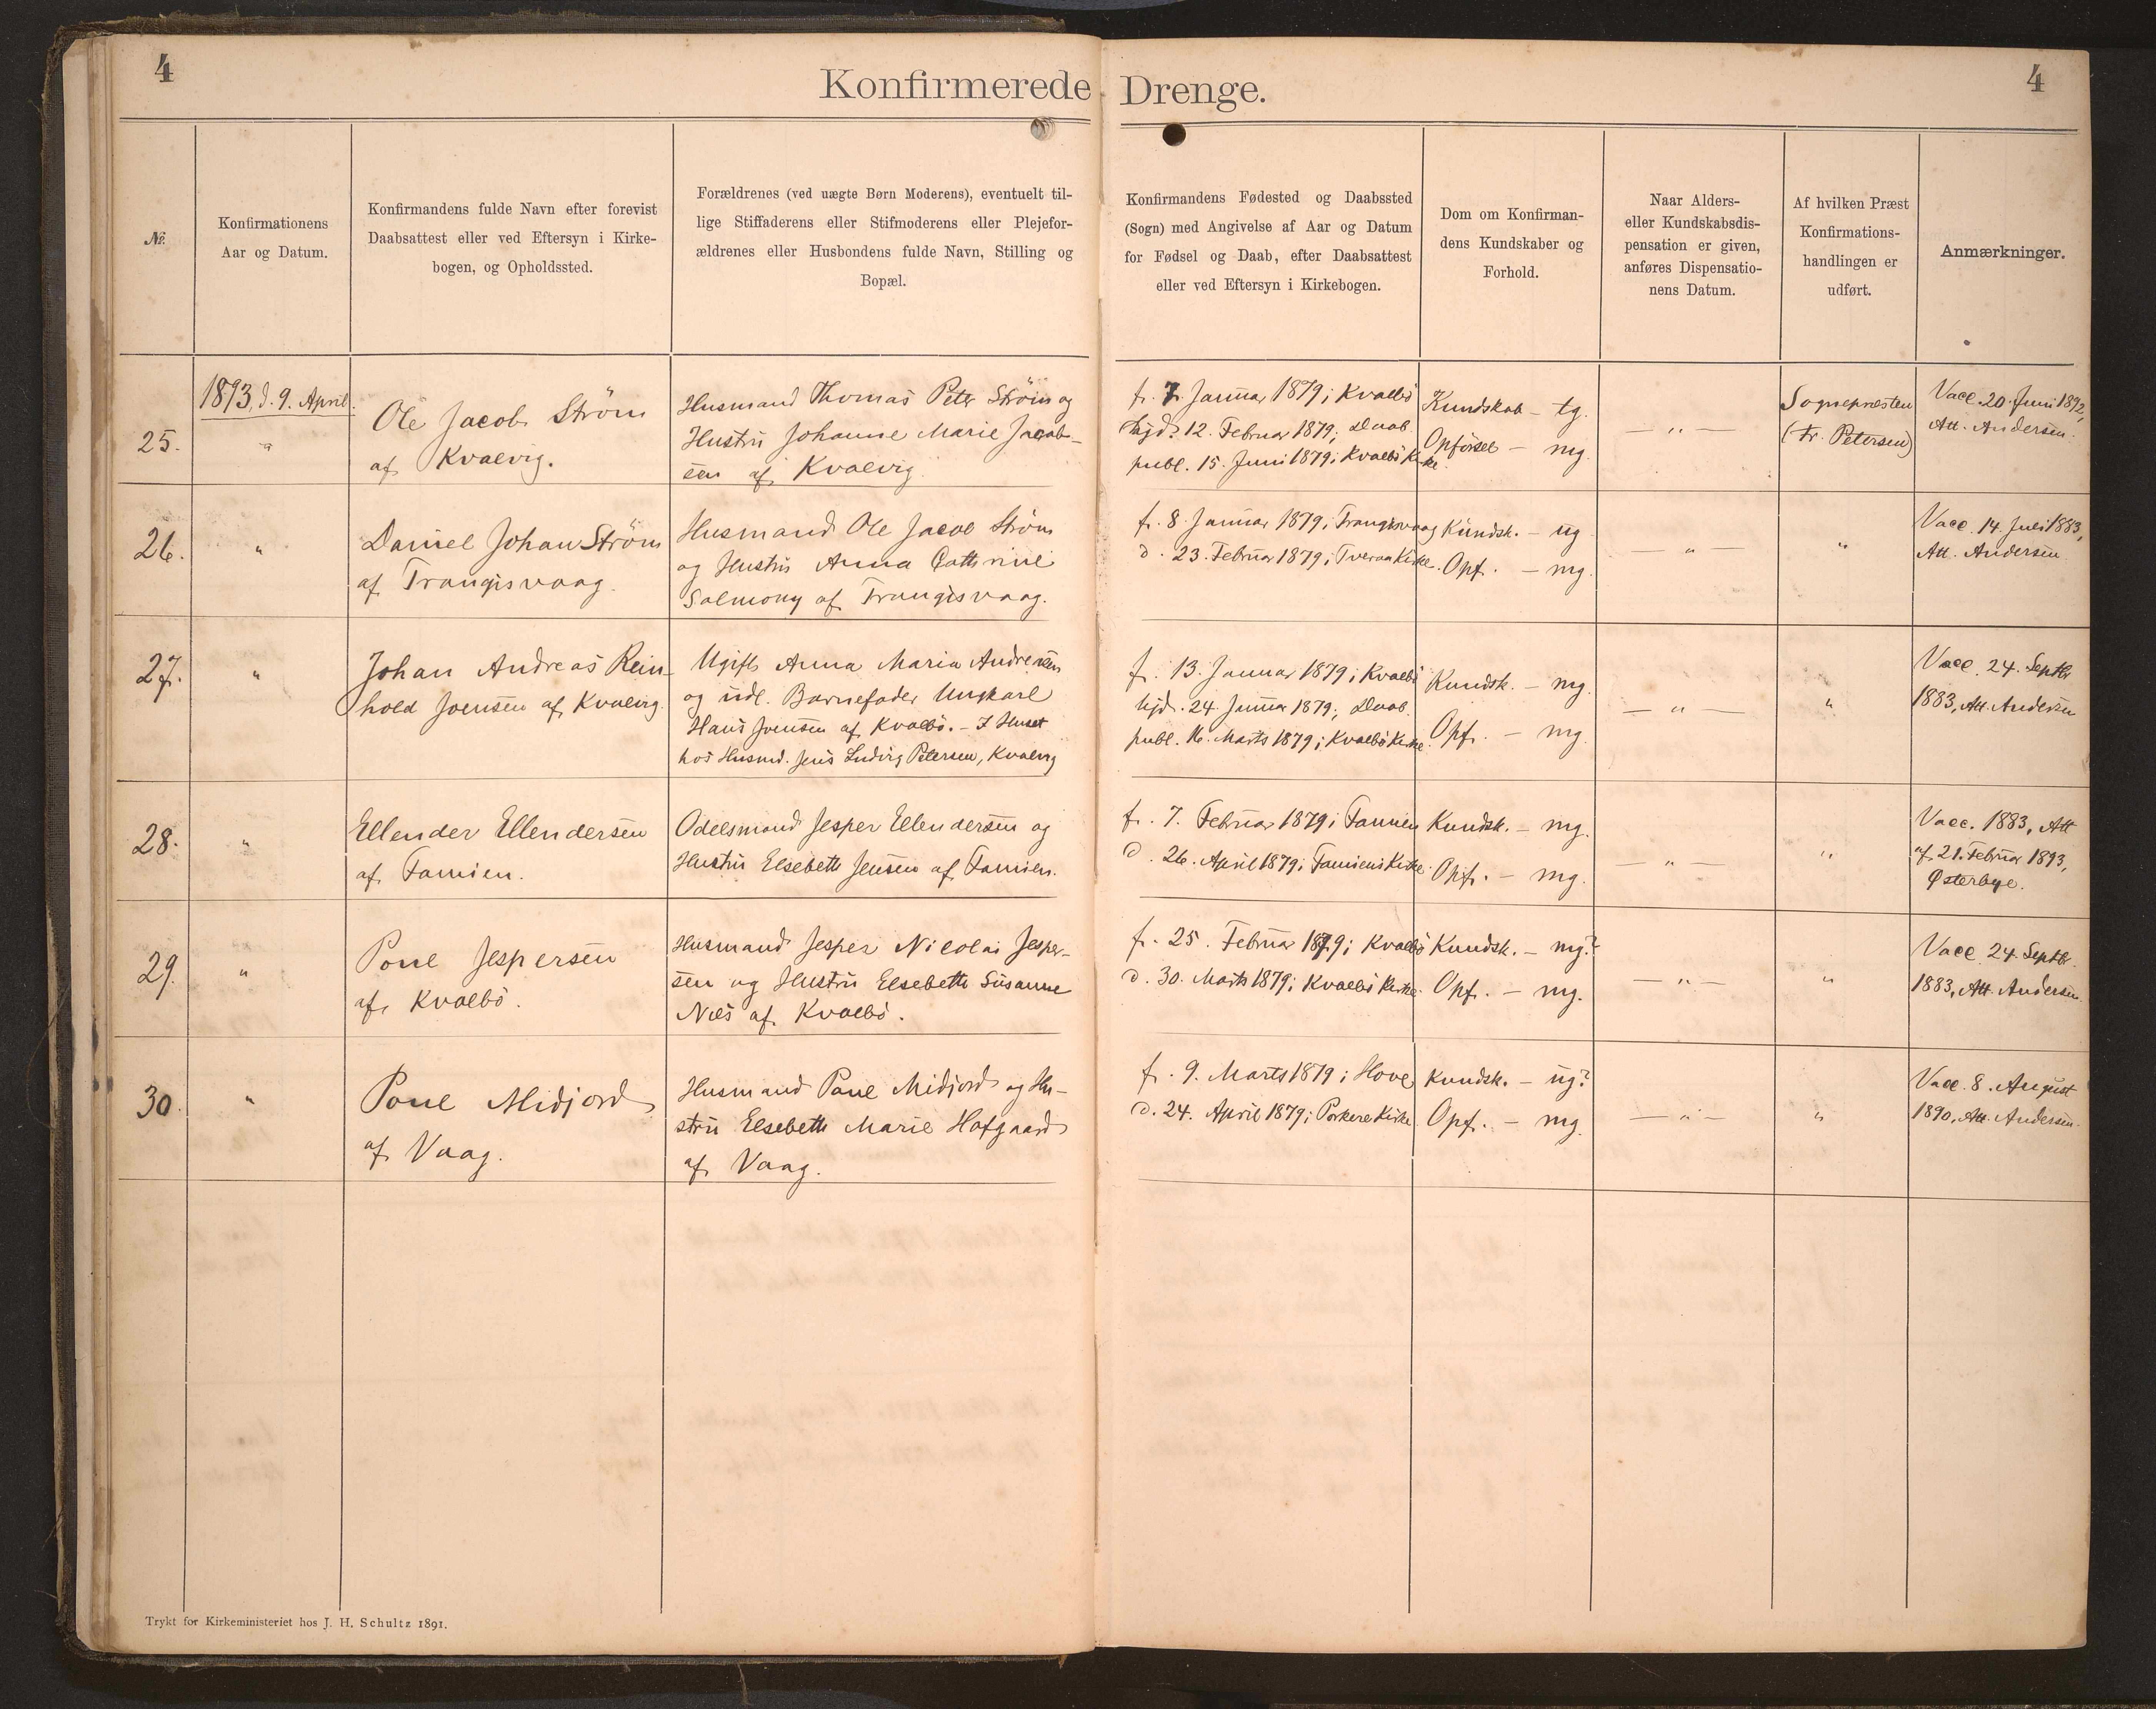 4
Konfirmerede Drenge.
4
№.
Konfirmationens
Aar og Datum.
Konfirmandens fulde Navn efter forevist
Daabsattest eller ved Eftersyn i Kirke-
bogen, og Opholdssted.
Forældrenes (ved uægte Børn Moderens), eventuelt til-
lige Stiffaderens eller Stifmoderens eller Plejefor-
ældrenes eller Husbondens fulde Navn, Stilling og
Bopæl.
Konfirmandens Fødested og Daabssted
(Sogn) med Angivelse af Aar og Datum
for Fødsel og Daab, efter Daabsattest
eller ved Eftersyn i Kirkebogen.
Dom om Konfirman-
dens Kundskaber og
Forhold.
Naar Alders-
eller Kundskabsdis-
pensation er given,
anføres Dispensatio-
nens Datum.
Af hvilken Præst
Konfirmations-
handlingen er
udført.
Anmærkninger.
25.
1893, d. 9. April.
"
Ole Jacob Ström
af Kvalvig.
Husmand Thomas Peter Ström og
Hustru Johanne Marie Jacob-
sen af Kvalvig
f. 7. Januar 1879 i Kvalbö
hjd. 12. Februar 1879; Daab.
publ. 15. Juni 1879 i Kvalbö Kirke
Kundskab – tg.
Opførsel – mg.
— " —
Sognepræsten
(Fr. Petersen)
Vacc. 20. Juni 1892,
Att. Andersen.
26.
"
Daniel Johan Ström
af Trangisvaag.
Husmand Ole Jacob Ström
og Hustru Anna Cathrine
Salmony af Trangisvaag.
f. 8. Januar 1879 i Trangisvaag
d. 23. Februar 1879 i Tveraa Kirke.
Kundsk. – ug
Opf. – mg.
— " —
"
Vacc. 14. Juli 1883,
Att. Andersen.
27.
"
Johan Andreas Rein-
hold Joensen af Kvalvig.
Ugift Anna Maria Andreasen
og udl. Barnefader Ungkarl
Hans Joensen af Kvalbö. – I Huset
hos Husmd. Jens Ludvig Petersen, Kvalvig
f. 13. Januar 1879 i Kvalbö
hjd. 24. Januar 1879; Daab.
publ. 16. Marts 1879 i Kvalbö Kirke.
Kundsk. – mg.
Opf. – mg.
— " —
"
Vacc. 24. Septbr
1883, Att. Andersen
28.
"
Ellender Ellendersen
af Famien.
Odelsmand Jesper Ellendersen og
Hustru Elsebeth Jensen af Famien.
f. 7. Februar 1879 i Famien
d. 26. April 1879 i Famiens Kirke.
Kundsk. – mg.
Opf. – mg.
— " —
"
Vacc. 1883, Att
af 21. Februar 1893,
Østerbye.
29.
"
Poul Jespersen
af Kvalbö.
Husmand Jesper Nicolai Jesper-
sen og Hustru Elsebeth Susanne
Niels af Kvalbö.
f. 25. Februar 1879 i Kvalbö
d. 30. Marts 1879 i Kvalbö Kirke.
Kundsk. – mg?
Opf. – mg.
— " —
"
Vacc. 24. Septbr.
1883, Att. Andersen.
30.
"
Poul Midjord
af Vaag.
Husmand Poul Midjord og Hu-
stru Elsebeth Marie Hofgaard
af Vaag.
f. 9. Marts 1879 i Hove
d. 24. April 1879 i Porkere Kirke
Kundsk. – ug?
Opf. – mg.
— " —
"
Vacc. 8. August
1890, Att. Andersen.
Trykt for Kirkeministeriet hos J. H. Schultz 1891.